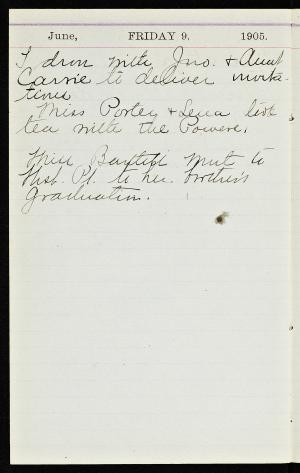 June, FRIDAY 9. 1905.
I drove with Jno. & Aunt
Carrie to deliver invita-
tions
Miss Porley & Lena took
tea with the Powers.
Miss went to
West. Pt. to her brother's
graduation.